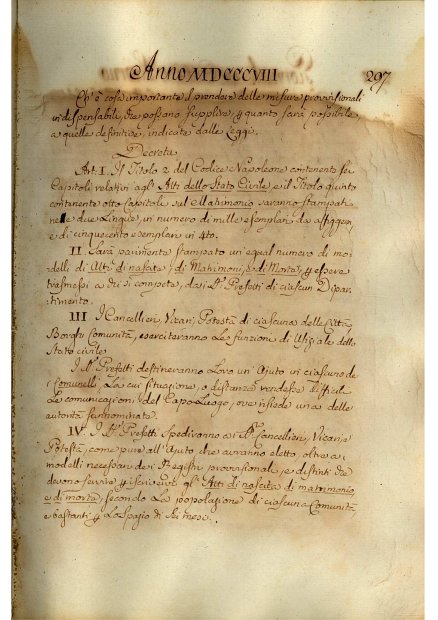 Anno MDCCCVIII
297
Ch'è cosa importante il prendere delle misure provisionali
indispensabili, che possano supplire, p quanto sarà possibile,
a quelle definitive, indicate dalle Leggi.
Decreta
Art. I. Il Titolo 2 del Codice Napoleone contenente sei
Capitoli relativi agl' Atti dello Stato Civile, e il Titolo quinto
contenente otto Capitoli sul Matrimonio saranno stampati
nelle due Lingue, in numero di mille esemplari da affiggersi,
e di cinquecento esemplari in 4to.
II. Sarà parimente stampato un egual numero di mo-
delli di Atti di nascita, di Matrimoni, e di Morte, p essere
trasmessi a chi si compete, dai SS.ri Prefetti di ciascun Dipar-
timento.
III I Cancellieri, Vicari, Potestà di ciascuna delle Città,
Borghi Comunità, eserciteranno le funzioni di Ufiziale dello
Stato Civile.
I SS.ri Prefetti destineranno Loro un' Ajuto in ciascuno de'
Comunelli, La cui situazione, o distanza rendesse difficili
Le comunicazioni del Capo-Luogo, ove risiede una delle
autorità sunnominate.
IV. I SS.ri Prefetti Spediranno ai SS.ri Cancellieri, Vicari, e
Potestà, come pure all' Ajuto che avranno eletto, oltre a
modelli necessari dei Registri provisionali, e distinti che
devono servire p iscrivere gl' Atti di nascita di matrimonio,
e di morte, secondo La popolazione di ciascuna Comunità
e bastanti p Lo Spazio di Sei mesi.